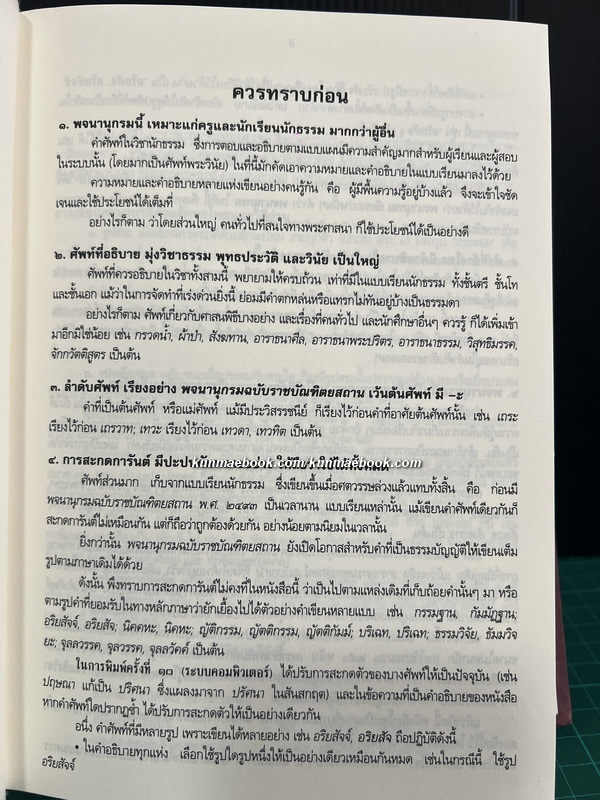 ควรทราบก่อน
๑. พจนานุกรมนี้ เหมาะแก่ครูและนักเรียนนักธรรม มากกว่าผู้อื่น
คำศัพท์ในวิชานักธรรม ซึ่งการตอบและอธิบายตามแบบแผนมีความสำคัญมากสำหรับผู้เรียนและผู้สอบ
ในระบบนั้น (โดยมากเป็นศัพท์พระวินัย) ในที่นี้มักคัดเอาความหมายและคำอธิบายในแบบเรียนมาลงไว้ด้วย
ความหมายและคำอธิบายหลายแห่งเขียนอย่างคนรู้กัน คือ ผู้มีพื้นความรู้อยู่บ้างแล้ว จึงจะเข้าใจชัด
เจนและใช้ประโยชน์ได้เต็มที่
อย่างไรก็ตาม ว่าโดยส่วนใหญ่ คนทั่วไปที่สนใจทางพระศาสนา ก็ใช้ประโยชน์ได้เป็นอย่างดี
๒. ศัพท์ที่อธิบาย มุ่งวิชาธรรม พุทธประวัติ และวินัย เป็นใหญ่
ศัพท์ที่ควรอธิบายในวิชาทั้งสามนี้ พยายามให้ครบถ้วน เท่าที่มีในแบบเรียนนักธรรม ทั้งชั้นตรี ชั้นโท
และชั้นเอก แม้ว่าในการจัดทำที่เร่งด่วนยิ่งนี้ ย่อมมีคำตกหล่นหรือแทรกไม่ทันอยู่บ้างเป็นธรรมดา
อย่างไรก็ตาม ศัพท์เกี่ยวกับศาสนพิธีบางอย่าง และเรื่องที่คนทั่วไป และนักศึกษาอื่นๆ ควรรู้ ก็ได้เพิ่มเข้า
มาอีกมิใช่น้อย เช่น กรวดน้ำ, ผ้าป่า, สังฆทาน, อาราธนาศีล, อาราธนาพระปริตร, อาราธนาธรรม, วิสุทธิมรรค,
จักกวัตติสูตร เป็นต้น
๓. ลำดับศัพท์ เรียงอย่าง พจนานุกรมฉบับราชบัณฑิตยสถาน เว้นต้นศัพท์ มี –ะ
คำที่เป็นต้นศัพท์ หรือแม่ศัพท์ แม้มีประวิสรรชนีย์ ก็เรียงไว้ก่อนคำที่อาศัยต้นศัพท์นั้น เช่น เถระ
เรียงไว้ก่อน เถรวาท; เทวะ เรียงไว้ก่อน เทวดา, เทวทัต เป็นต้น
๔. การสะกดการันต์ มีปะปน
kinmaebook.com/kinmaebook.com
ศัพท์ส่วนมาก เก็บจากแบบเรียนนักธรรม ซึ่งเขียนขึ้นเมื่อศตวรรษล่วงแล้วแทบทั้งสิ้น คือ ก่อนมี
พจนานุกรมฉบับราชบัณฑิตยสถาน พ.ศ. ๒๔๙๓ เป็นเวลานาน แบบเรียนเหล่านั้น แม้เขียนคำศัพท์เดียวกันก็
สะกดการันต์ไม่เหมือนกัน แต่ก็ถือว่าถูกต้องด้วยกัน อย่างน้อยตามนิยมในเวลานั้น
ยิ่งกว่านั้น พจนานุกรมฉบับราชบัณฑิตยสถาน ยังเปิดโอกาสสำหรับคำที่เป็นธรรมบัญญัติให้เขียนเต็ม
รูปตามภาษาเดิมได้ด้วย
ดังนั้น พึงทราบการสะกดการันต์ไม่คงที่ในหนังสือนี้ ว่าเป็นไปตามแหล่งเดิมที่เก็บถ้อยคำนั้นๆ มา หรือ
ตามรูปคำที่ยอมรับในทางหลักภาษาว่ายักเยื้องไปได้ตัวอย่างคำเขียนหลายแบบ เช่น กรรมฐาน, กัมมัฏฐาน;
อริยสัจจ์, อริยสัจ; นิคคหะ, นิคหะ; ญัติกรรม, ญัตติกรรม, ญัตติกัมม์; บริเฉท, ปริเฉท; ธรรมวิจัย, ธัมมวิจ
ยะ; จุลลวรรค, จุลวรรค, จุลลวัคค์ เป็นต้น
ในการพิมพ์ครั้งที่ ๑๐ (ระบบคอมพิวเตอร์) ได้ปรับการสะกดตัวของบางศัพท์ให้เป็นปัจจุบัน (เช่น
ปฤษณา แก้เป็น ปริศนา ซึ่งแผลงมาจาก ปรัศนา ในสันสกฤต) และในข้อความที่เป็นคำอธิบายของหนังสือ
หากคำศัพท์ใดปรากฏซ้ำ ได้ปรับการสะกดตัวให้เป็นอย่างเดียวกัน
อนึ่ง คำศัพท์ที่มีหลายรูป เพราะเขียนได้หลายอย่าง เช่น อริยสัจจ์, อริยสัจ ถือปฏิบัติดังนี้
• ในคำอธิบายทุกแห่ง เลือกใช้รูปใดรูปหนึ่งให้เป็นอย่างเดียวเหมือนกันหมด เช่นในกรณีนี้ ใช้รูป
อริยสัจจ์